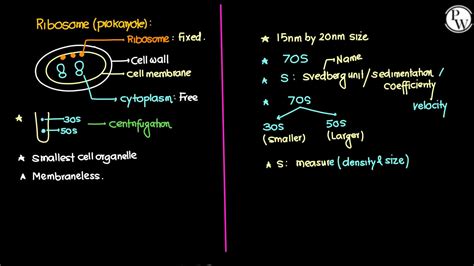 Ribosome (prokaryote):
Ribosome: Fixed.
Cell wall
Cell membrane
Cytoplasm: Free
★ 30S
50S
Centrifugation
★ Smallest cell organelle
★ Membraneless.
★ 15nm by 20nm size
★ 70S Name
★ S: Svedberg unit/sedimentation/
coefficient/
velocity
★ 70S
30S 50S
(smaller) (Larger)
★ S: measure (density & size)
PW